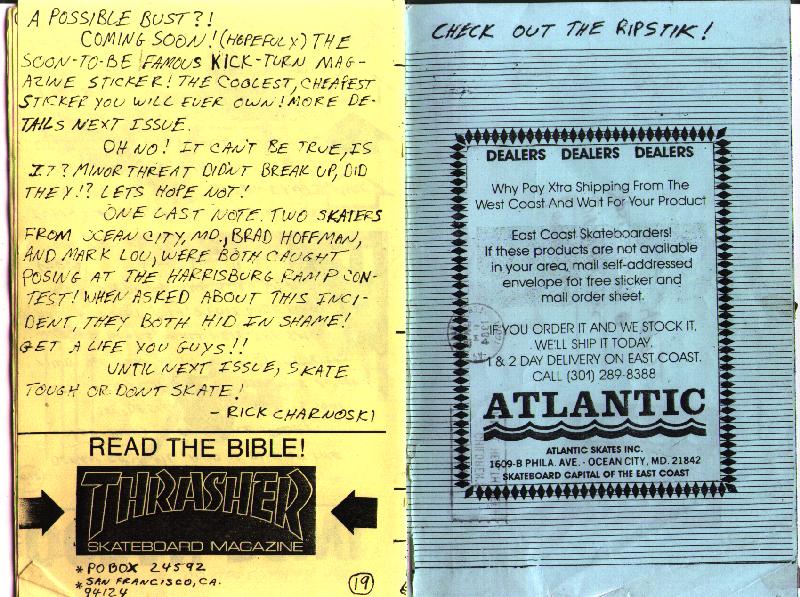 A POSSIBLE BUST?!
COMING SOON! (HOPEFULY) THE
SOON-TO-BE FAMOUS KICK-TURN MAG-
AZINE STICKER! THE COOLEST, CHEAPEST
STICKER YOU WILL EVER OWN! MORE DE-
TAILS NEXT ISSUE.
OH NO! IT CAN'T BE TRUE, IS
IT? MINOR THREAT DIDN'T BREAK UP, DID
THEY!? LETS HOPE NOT!
ONE LAST NOTE. TWO SKATERS
FROM OCEAN CITY, MD., BRAD HOFFMAN,
AND MARK LOU, WERE BOTH CAUGHT
POSING AT THE HARRISBURG RAMP CON-
TEST! WHEN ASKED ABOUT THIS INCI-
DENT, THEY BOTH HID IN SHAME!
GET A LIFE YOU GUYS!!
UNTIL NEXT ISSUE, SKATE
TOUGH OR DONT SKATE!
- RICK CHARNOSKI
READ THE BIBLE!
THRASHER
SKATEBOARD MAGAZINE
* PO BOX 24592
* SAN FRANCISCO, CA.
94124
19
CHECK OUT THE RIPSTIK!
DEALERS DEALERS DEALERS
Why Pay Xtra Shipping From The
West Coast And Wait For Your Product
East Coast Skateboarders!
If these products are not available
in your area, mail self-addressed
envelope for free sticker and
mail order sheet.
IF YOU ORDER IT AND WE STOCK IT,
WE'LL SHIP IT TODAY.
1 & 2 DAY DELIVERY ON EAST COAST.
CALL (301) 289-8388
ATLANTIC
ATLANTIC SKATES INC.
1609-B PHILA. AVE. - OCEAN CITY, MD. 21842
SKATEBOARD CAPITAL OF THE EAST COAST